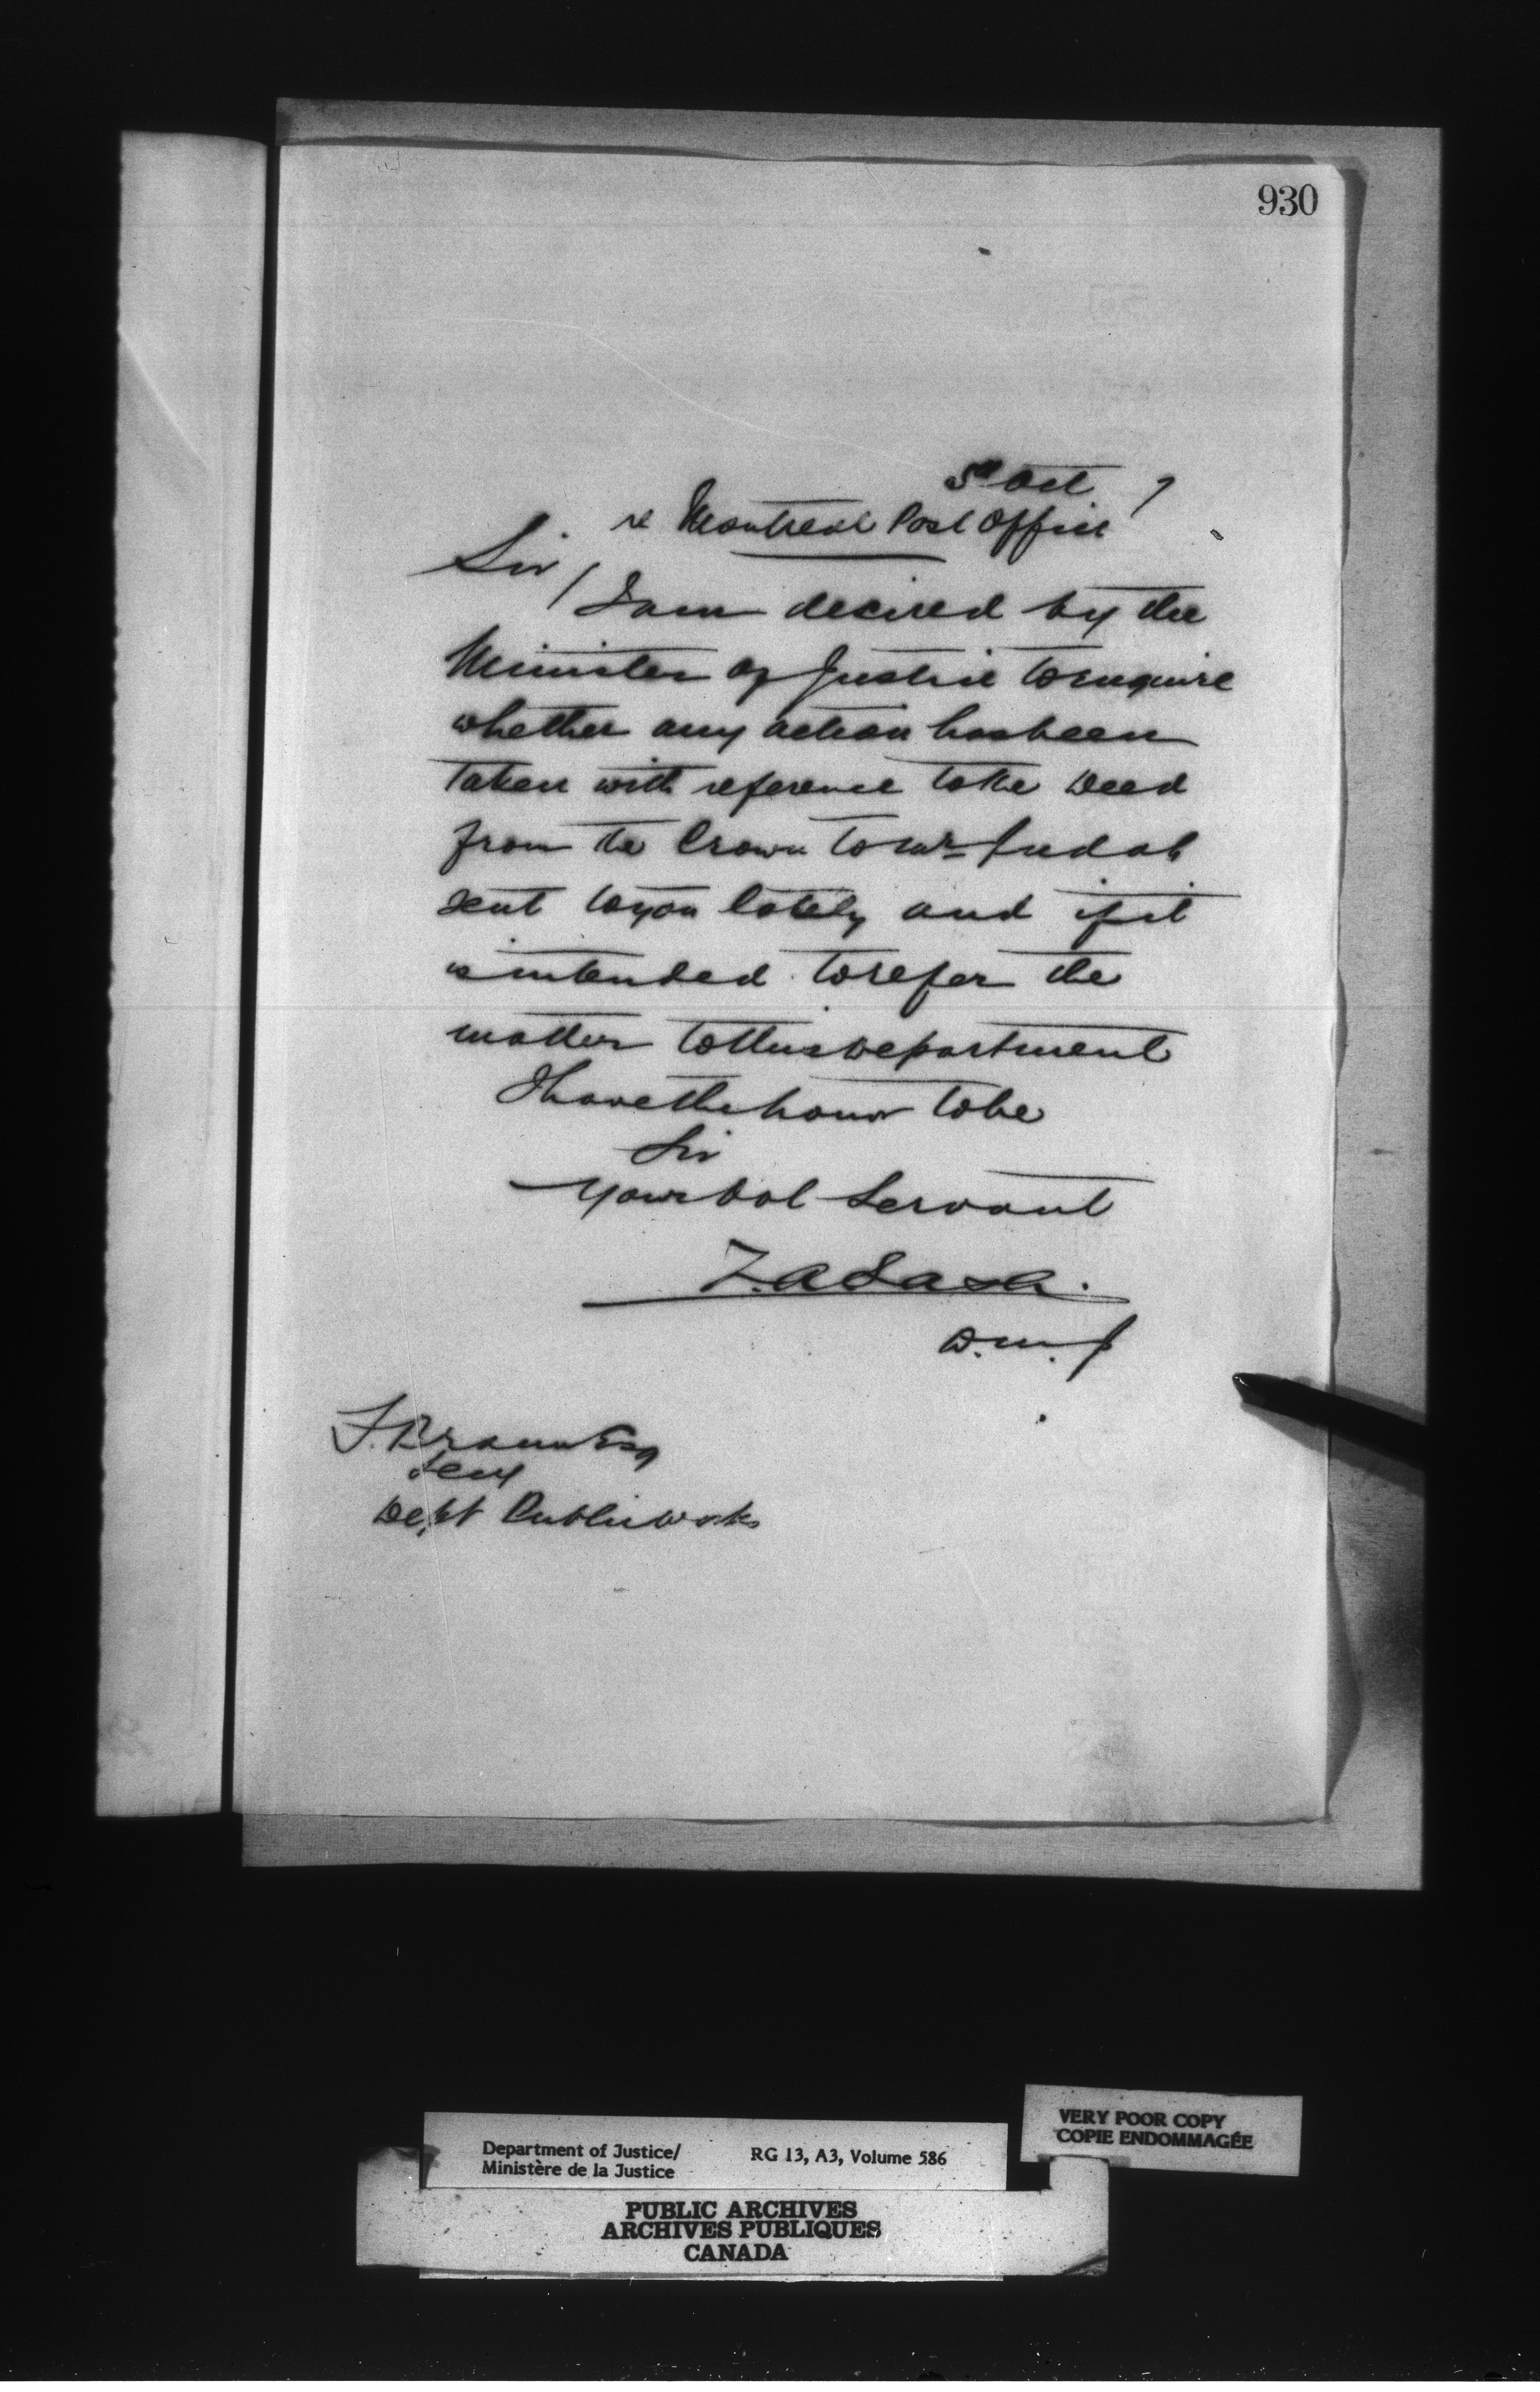 930
5th Oct 7
re Montreal Post Office
Sir /
I am desired by the
Minister of Justice to enquire
whether any action has been
taken with reference to the Deed
from the Crown to Mr Judah
sent to you lately and if it
is intended to refer the
matter to this Department
I have the honor to be
Sir
Your Obt Servant
Z.A Lash.
D.M.J
F. Braun Esq
Secy
Dept Public Works
VERY POOR COPY
COPIE ENDOMMAGÉE
Department of Justice/ RG 13, A3, Volume 586
Ministère de la Justice
PUBLIC ARCHIVES
ARCHIVES PUBLIQUES
CANADA